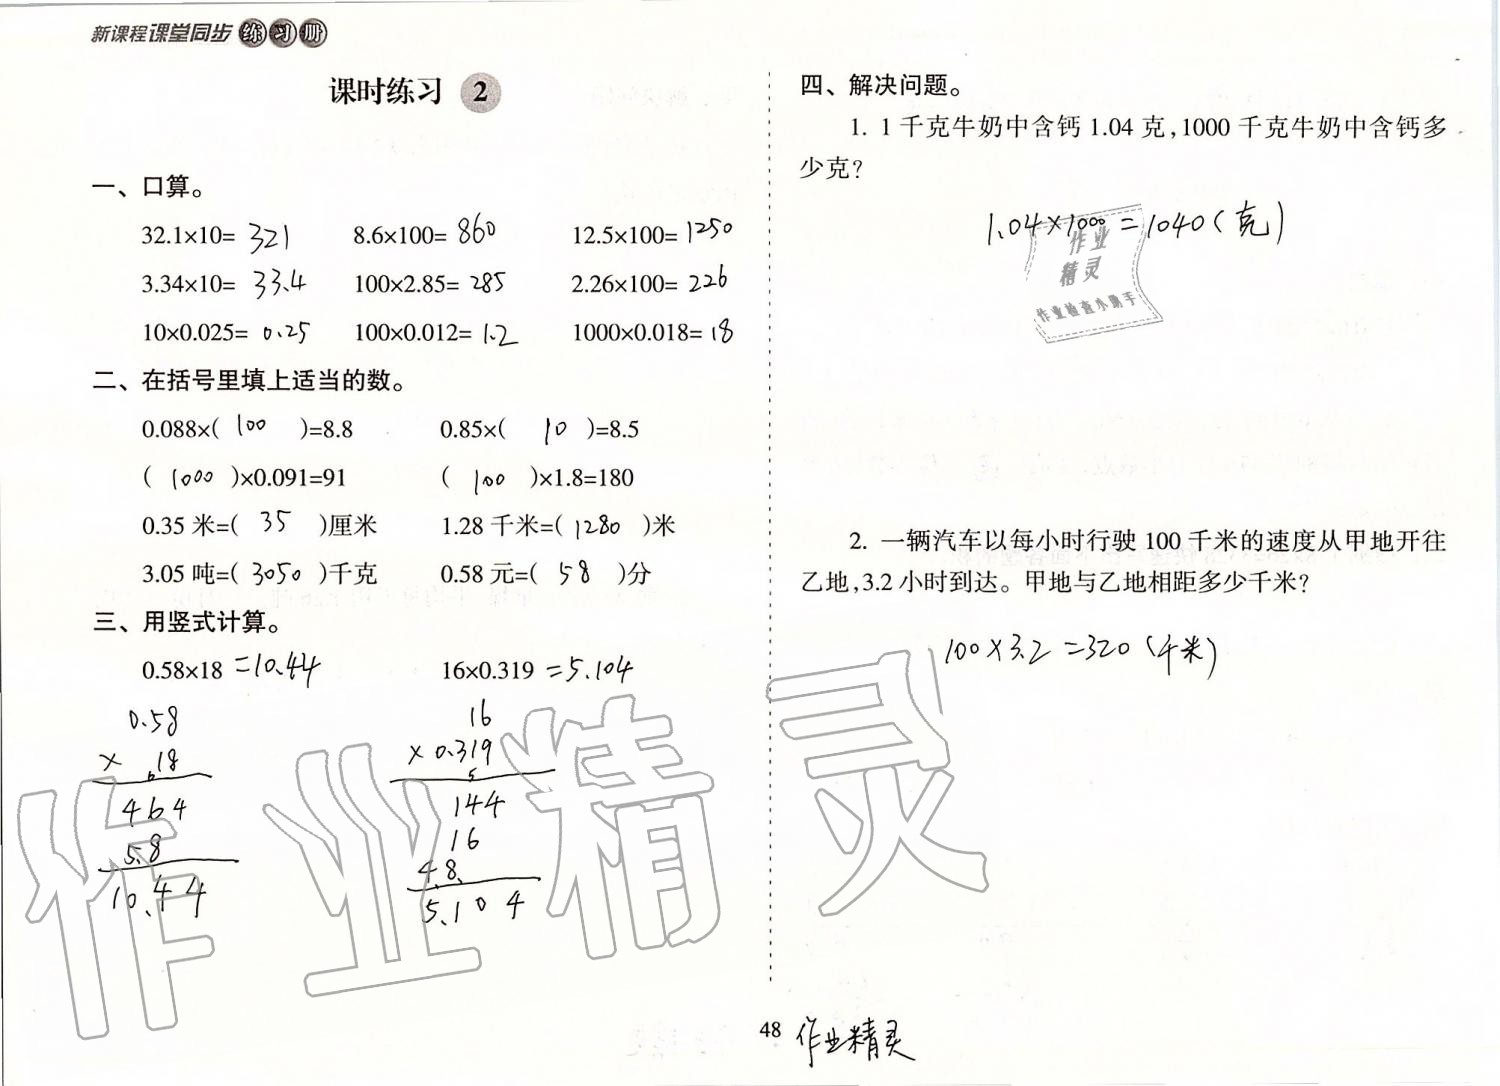 新课程课堂同步练习册
课时练习 2
一、口算。
32.1×10= 321 8.6×100= 860 12.5×100= 1250
3.34×10= 33.4 100×2.85= 285 2.26×100= 226
10×0.025= 0.25 100×0.012= 1.2 1000×0.018= 18
二、在括号里填上适当的数。
0.088×( 100 )=8.8 0.85×( 10 )=8.5
( 1000 )×0.091=91 ( 100 )×1.8=180
0.35 米=( 35 )厘米 1.28 千米=( 1280 )米
3.05 吨=( 3050 )千克 0.58 元=( 58 )分
三、用竖式计算。
0.58×18 =10.44 16×0.319 =5.104
0.58
× 18
6
464
5.8
10.44
16
× 0.319
5
144
16
4.8
5.104
四、解决问题。
1. 1 千克牛奶中含钙 1.04 克,1000 千克牛奶中含钙多
少克?
1.04×1000=1040(克)
作业
精灵
作业检查小助手
2. 一辆汽车以每小时行驶 100 千米的速度从甲地开往
乙地,3.2 小时到达。甲地与乙地相距多少千米?
100×3.2=320(千米)
作业精灵
48 作业精灵